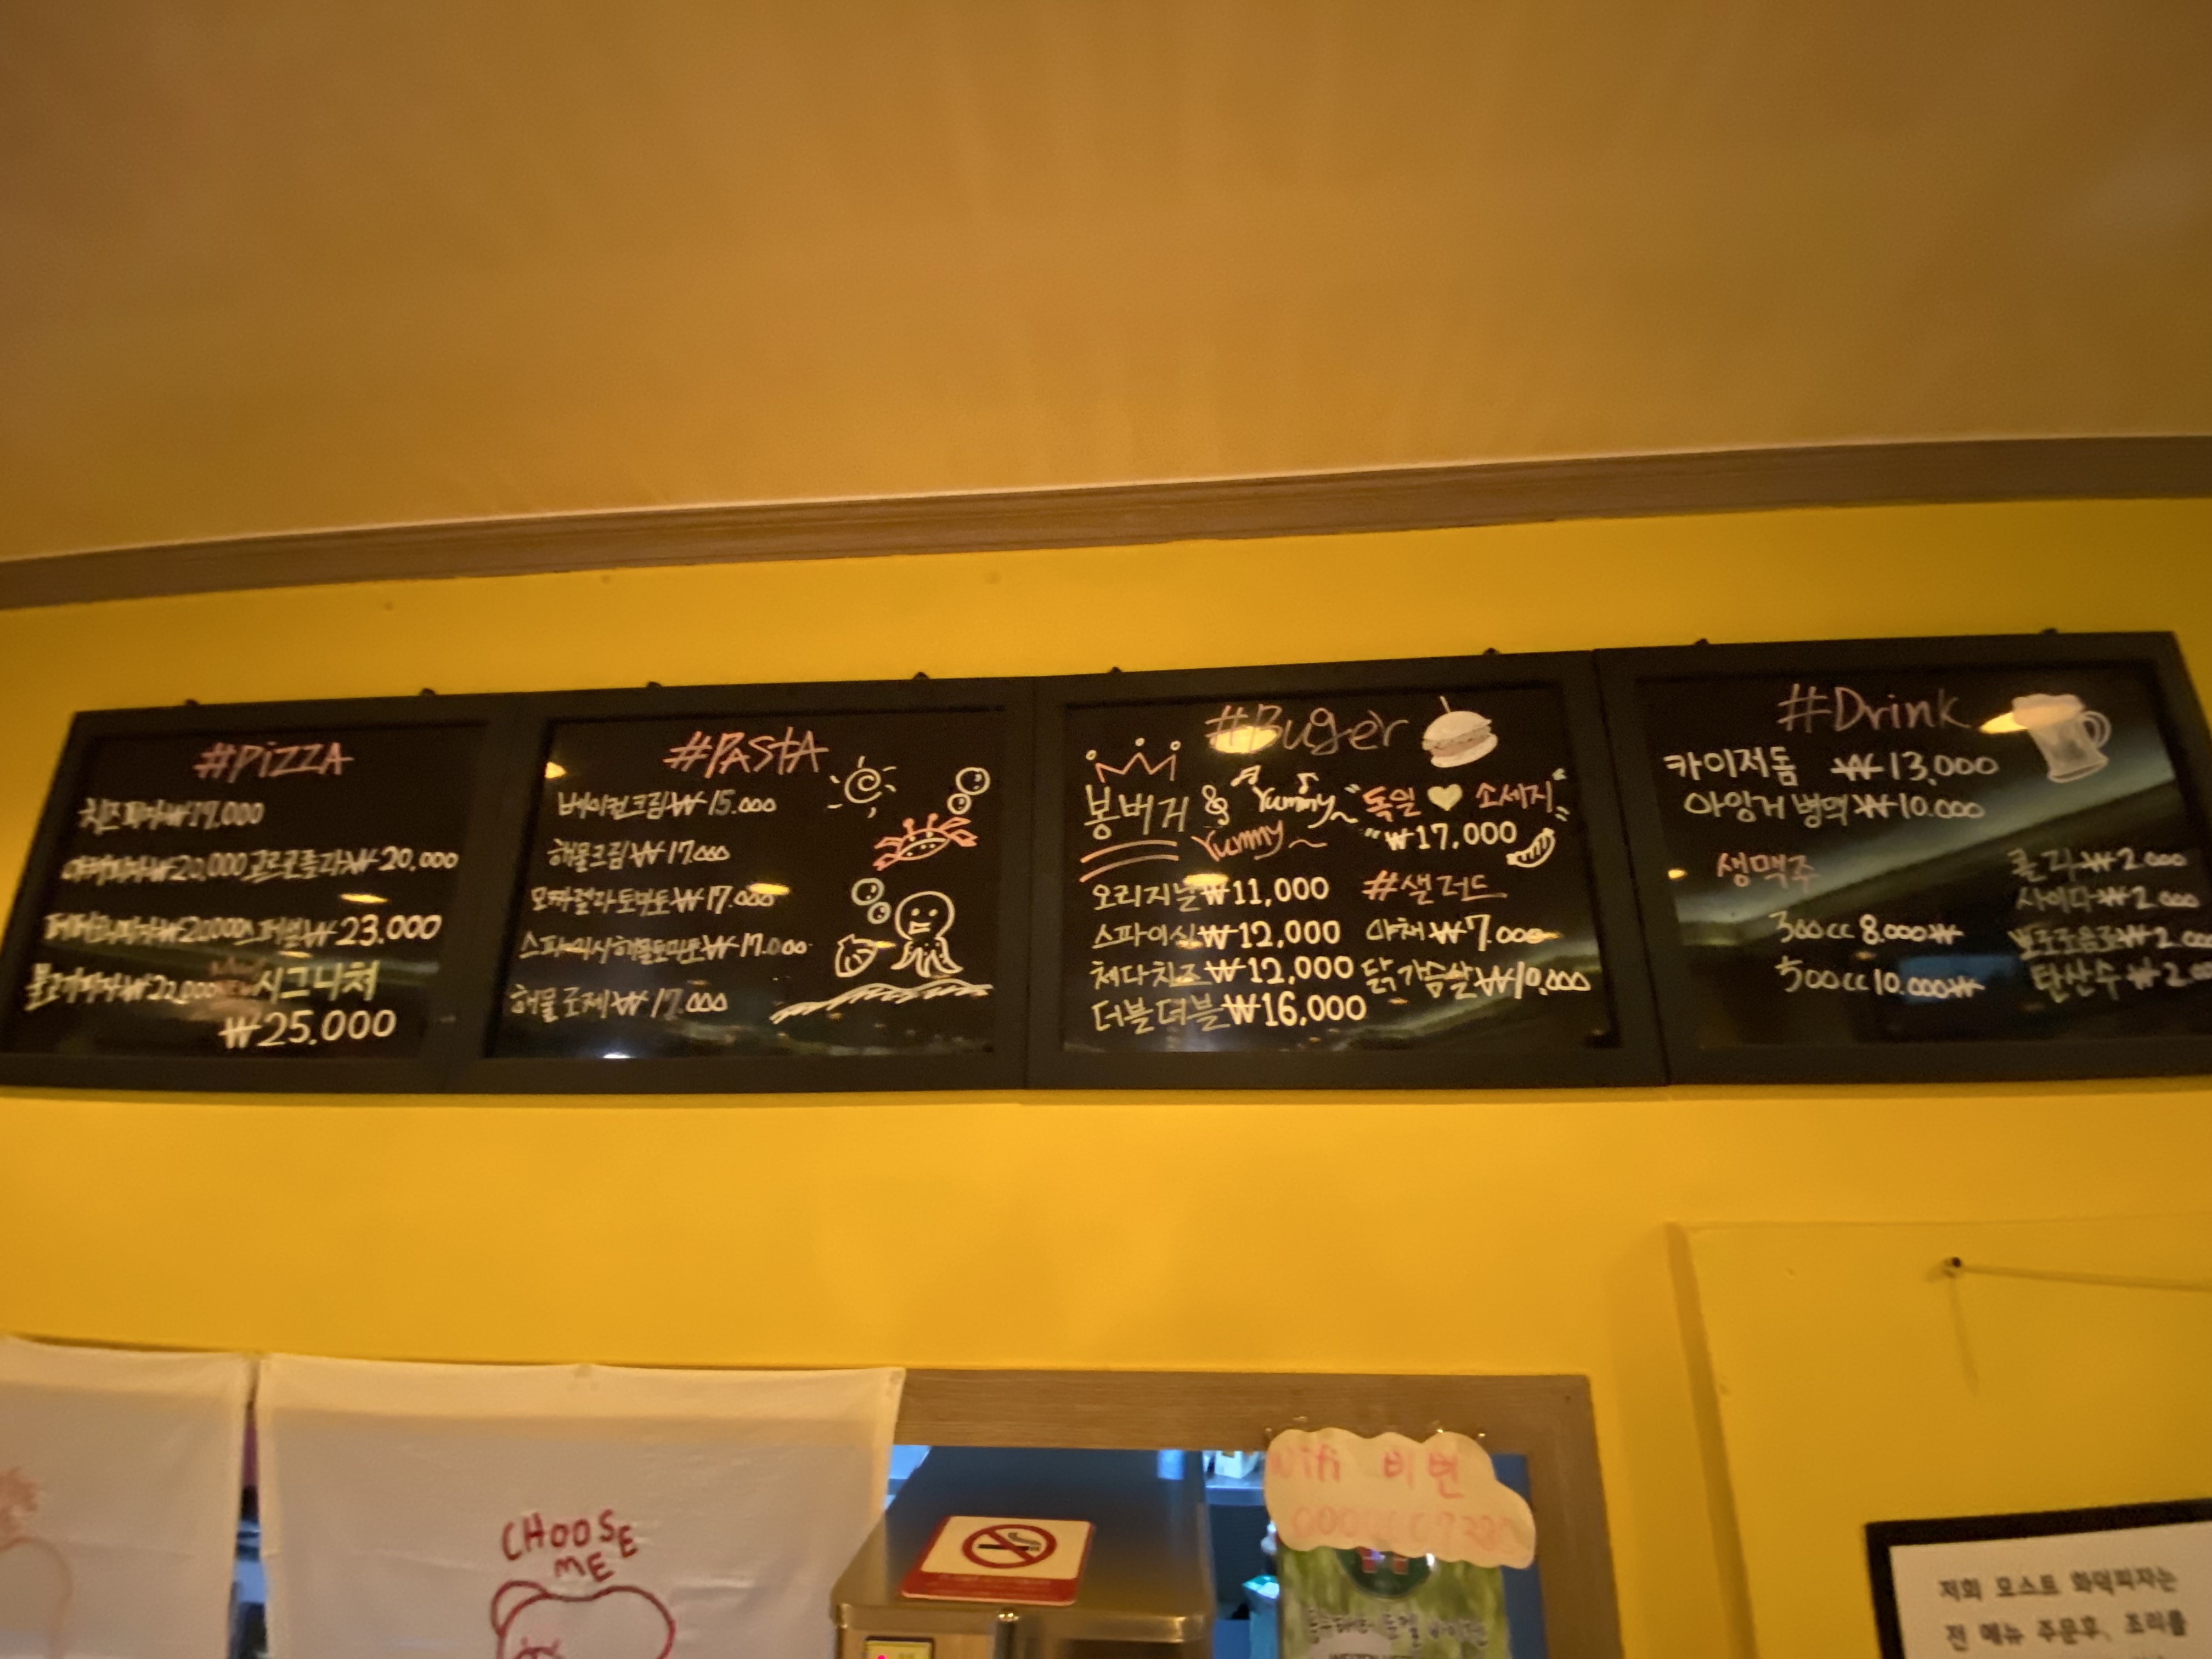 #PizzA
치즈피자₩19,000
야채피자₩20,000 고르곤졸라₩20,000
페퍼로니피자₩20,000 스페셜₩23.000
불고기피자₩22,000 시그니쳐
₩25.000
#PAStA
베이컨크림₩15.000
해물크림₩17.000
모짜렐라토마토₩17.000
스파이시해물토마토₩17.000
해물로제₩17.000
#Buger
봉버거 & Yummy~
Yummy~
"독일 소세지"
₩17,000
오리지날₩11,000
스파이시₩12,000
체다치즈₩12,000
더블더블₩16,000
#샐러드
야채₩7.000
닭가슴살₩10,000
#Drink
카이저돔 ₩13,000
아잉거 병맥₩10.000
생맥주
300cc 8.000₩
500cc 10.000₩
콜라₩2.000
사이다₩2.000
탄산수₩2.0
CHOOSE
ME
Wifi 비번
저희 모스트 화덕피자는
전 메뉴 주문후, 조리를